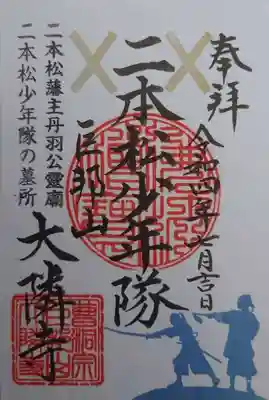 奉拝
令和四年七月吉日
二本松少年隊
巨邦山
大隣寺
二本松藩主丹羽公霊廟
二本松少年隊の墓所